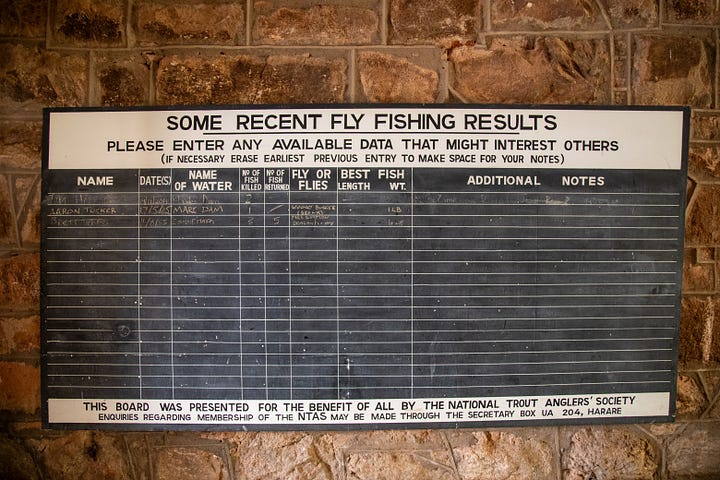 SOME RECENT FLY FISHING RESULTS
PLEASE ENTER ANY AVAILABLE DATA THAT MIGHT INTEREST OTHERS
(IF NECESSARY ERASE EARLIEST PREVIOUS ENTRY TO MAKE SPACE FOR YOUR NOTES)
NAME DATE(S) NAME OF WATER Nº OF FISH KILLED Nº OF FISH RETURNED FLY OR FLIES BEST FISH LENGTH WT. ADDITIONAL NOTES
AARON TUCKER MARE DAM 1 1LB
3 5
THIS BOARD WAS PRESENTED FOR THE BENEFIT OF ALL BY THE NATIONAL TROUT ANGLERS' SOCIETY
ENQUIRIES REGARDING MEMBERSHIP OF THE NTAS MAY BE MADE THROUGH THE SECRETARY BOX UA 204, HARARE